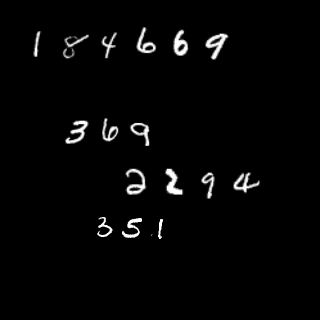 184669
369
2294
351